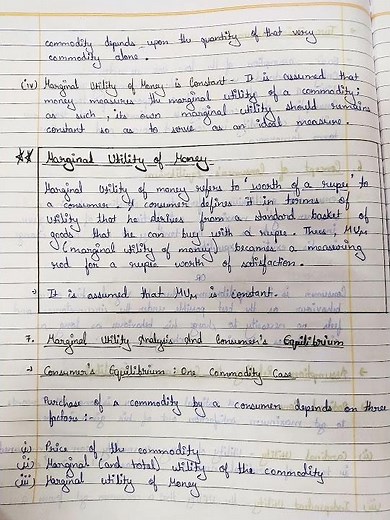 commodity depends upon the quantity of that very
commodity alone.
(iv) Marginal Utility of Money is Constant - It is assumed that
money measures the marginal utility of a commodity;
as such, its own marginal utility should remains
constant so as to serve as an ideal measure.
** Marginal Utility of Money
Marginal Utility of money refers to 'worth of a rupee' to
a consumer. A consumer defines it in terms of
utility that he derives from a standard basket of
goods that he can buy with a rupee. Thus MUM
(marginal utility of money) becomes a measuring
rod for a rupee worth of satisfaction.
→ It is assumed that MUM is constant.
7. Marginal Utility Analysis and Consumer's Equilibrium
→ Consumer's Equilibrium: One Commodity Case
Purchase of a commodity by a consumer depends on three
factors :-
(i) Price of the commodity
(ii) Marginal (and total) utility of the commodity
(iii) Marginal utility of Money